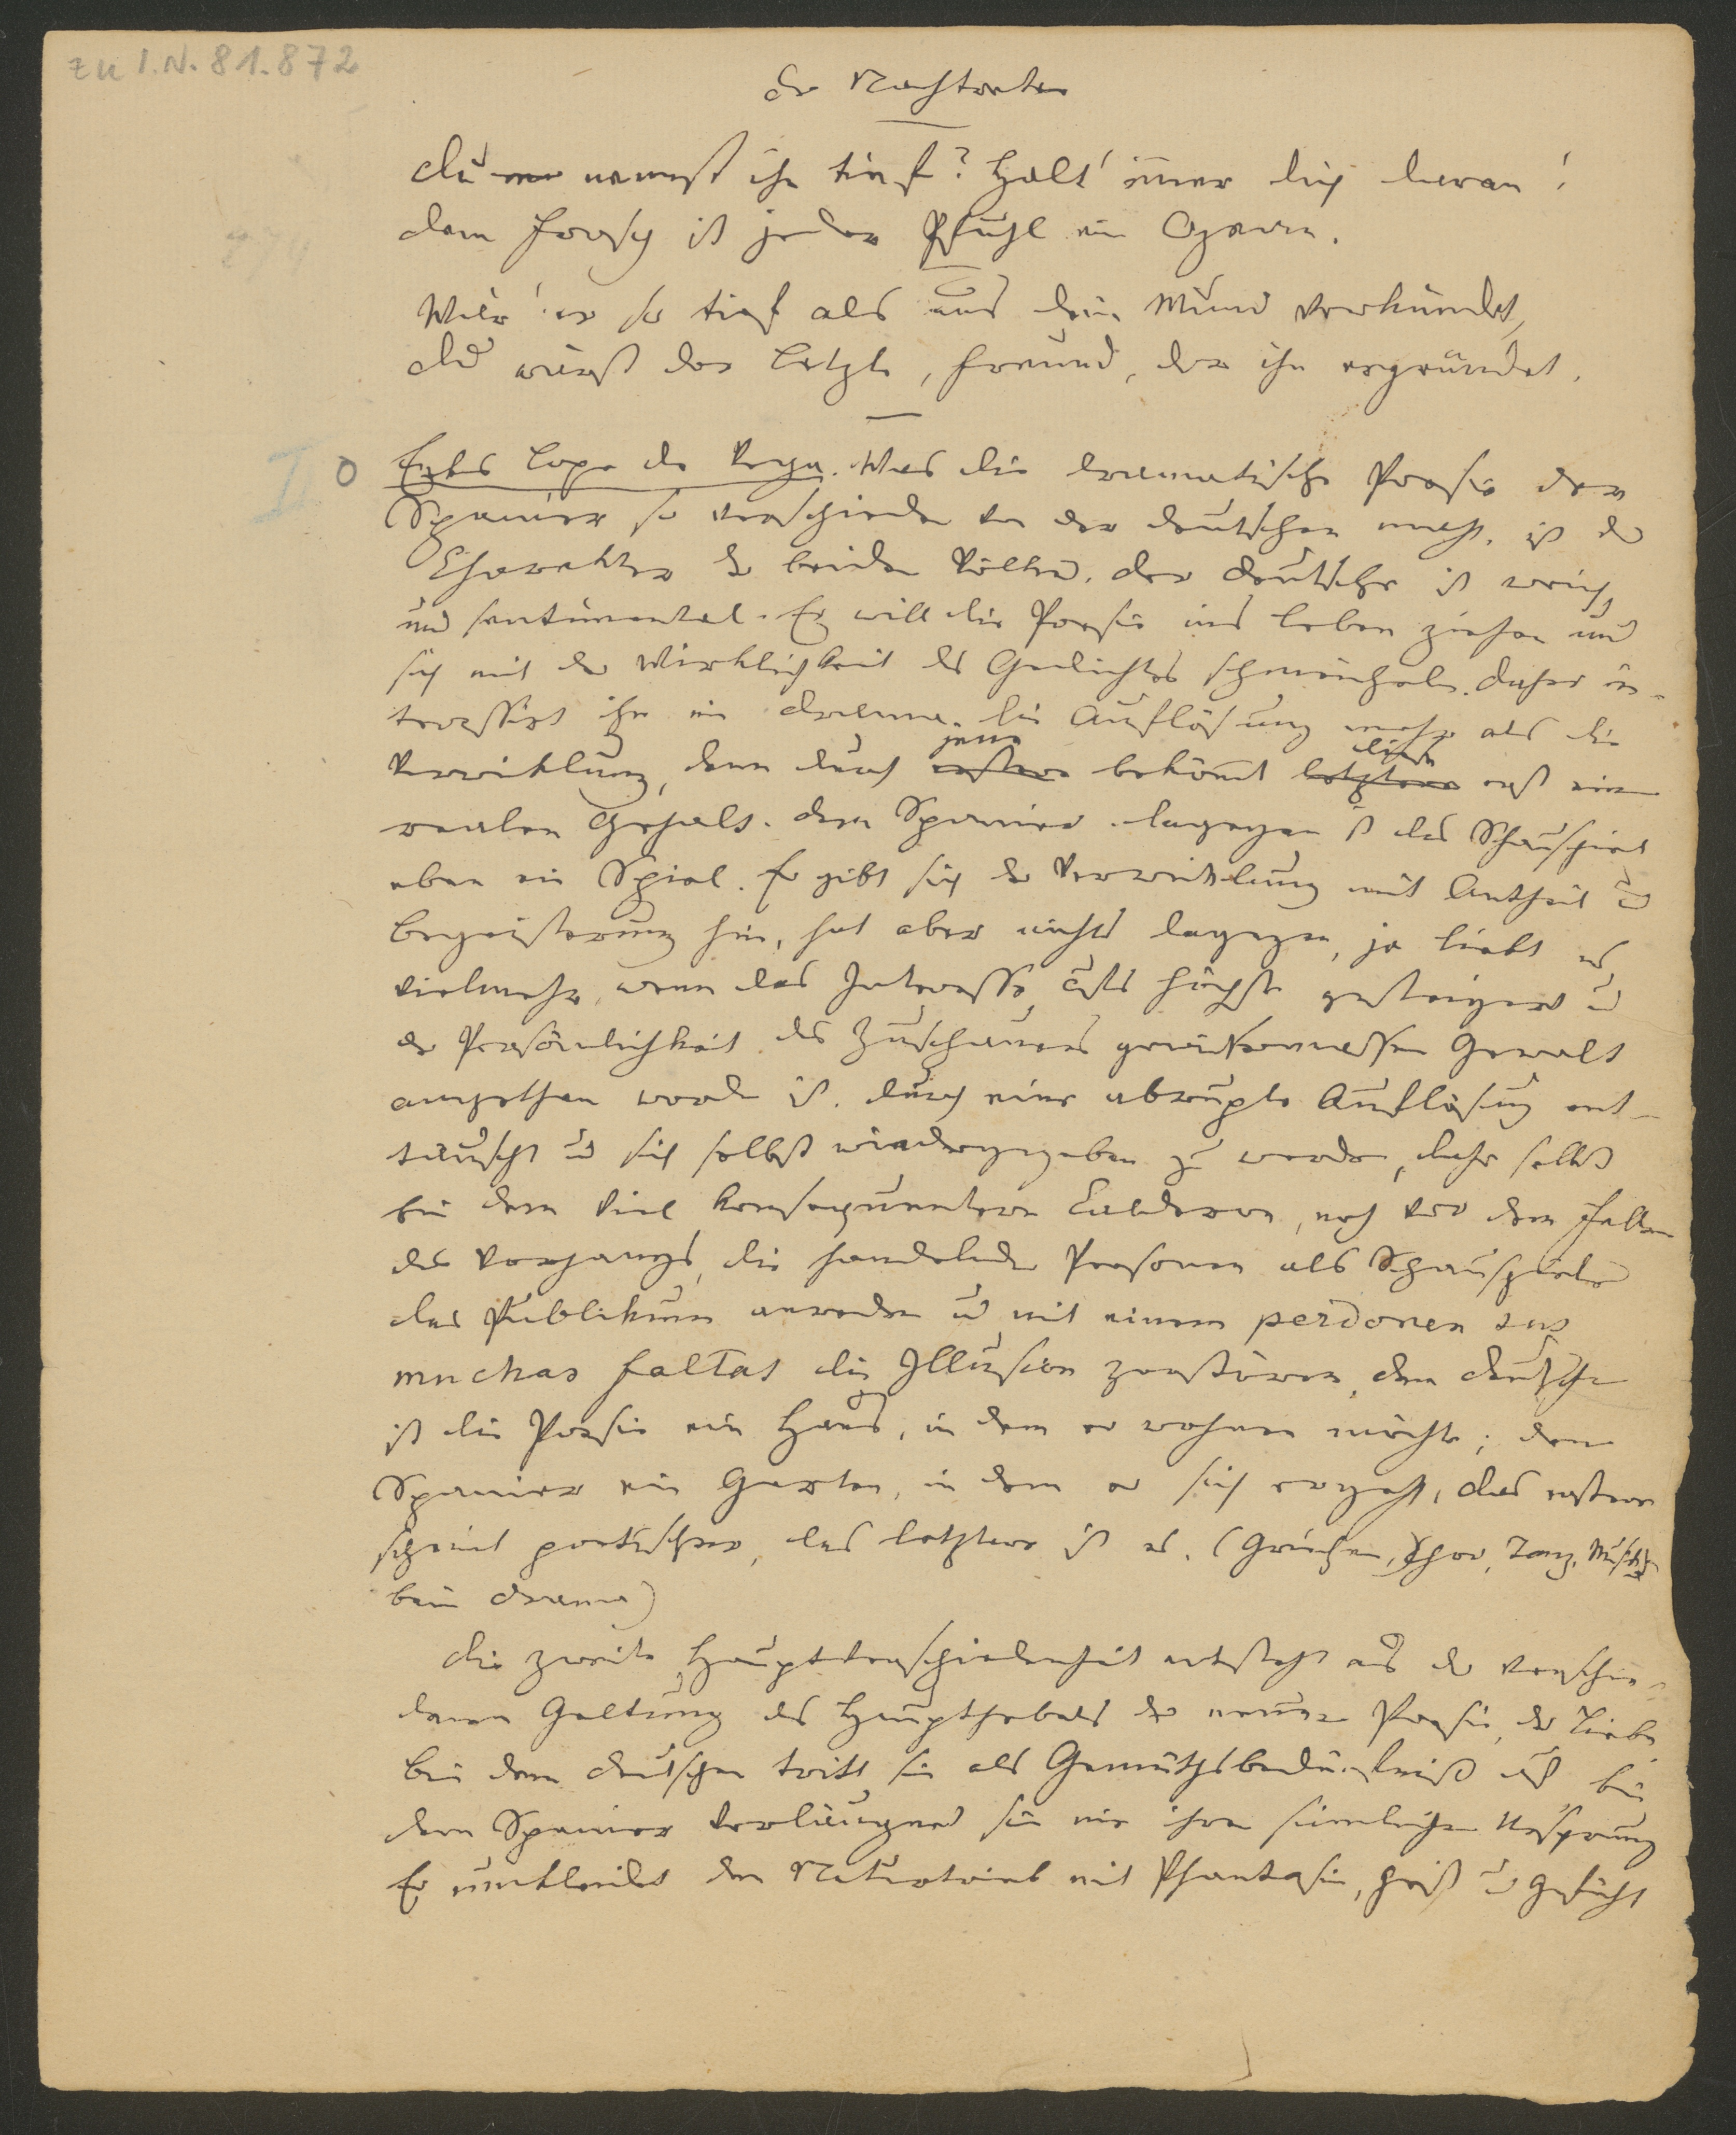 zu I.N. 81.872
Der Nachtreter
Du nennst ihn tief? Halt' immer dich daran!
Dem Frosch ist jeder Pfuhl ein Ozean.
Wär' er so tief als uns dein Mund verkündet,
Du wärst der Letzte, Freund, der ihn ergründet.
II o Exbs Lope de Vega. Was die dramatische Poesie der
Spanier so verschieden von der deutschen macht, ist der
Charakter der beiden Völker. Der Deutsche ist weich
und sentimental. Er will die Poesie ins Leben ziehen und
sich mit der Wirklichkeit des Gedichtes schmeicheln. Daher in-
teressirt ihn im Drama die Auflösung mehr als die
Verwicklung, denn durch erstere jene bekömmt letztere diese erst einen
realen Gehalt. Dem Spanier dagegen ist das Schauspiel
eben ein Spiel. Er gibt sich der Verwicklung mit Antheil und
Begeisterung hin, hat aber nichts dagegen, ja liebt es
vielmehr, wenn das Interesse aufs höchste gesteigert und
der Persönlichkeit des Zuschauers gewissermassen Gewalt
angethan worden ist, durch eine abrupte Auflösung ent-
täuscht und sich selbst wiedergegeben zu werden, daher selbst
bei dem viel konsequentern Calderon, noch vor dem Fallen
des Vorhangs, die handelnden Personen als Schauspieler
das Publikum anreden und mit einem perdonen sus
muchas faltas die Illusion zerstören. Dem Deutschen
ist die Poesie ein Haus, in dem er wohnen möchte; dem
Spanier ein Garten, in dem er sich ergeht, das erstere
scheint poetischer, das letztere ist es. (Griechen, Chor, Tanz, Musik
beim Drama)
Die zweite Hauptverschiedenheit entsteht aus der verschie-
denen Geltung des Haupthebels der neuern Poesie, der Liebe.
Bei dem Deutschen tritt sie als Gemüthsbedürfniß auf, bei
dem Spanier verläugnet sie nie ihren sinnlichen Ursprung
Er umkleidet den Naturtrieb mit Phantasie, Geist und Gefühl